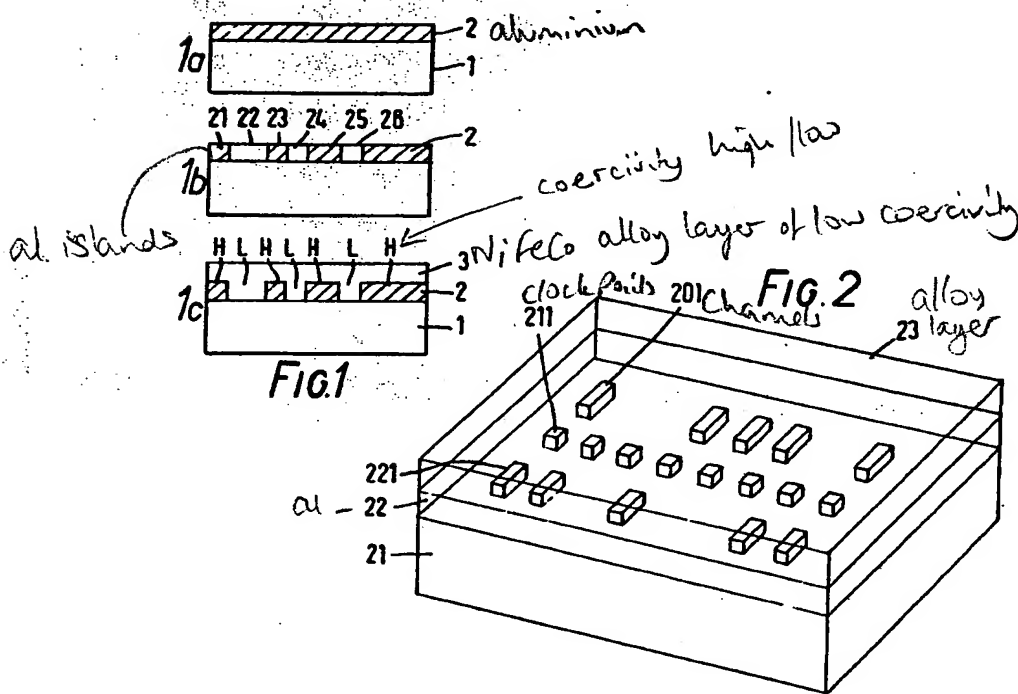 2 aluminium
1a
1
21 22 23 24 25 26
2
1b
coercivity high/low
al. islands
H L H L H L H
3 NiFeCo alloy layer of low coercivity
2
1c
1
FIG.1
FIG.2
clock points
211
201 Channels
alloy layer
23
221
al - 22
21